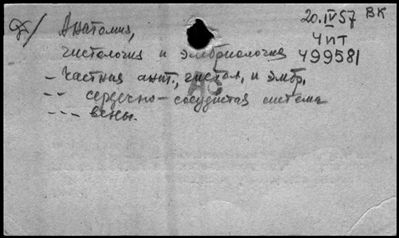 Анатомия,
гистология и эмбриология
- Частная анат., гистол, и эмбр,
-- сердечно-сосудистая система
--- вены.
20.IV57 ВК
Чит
499581
АС